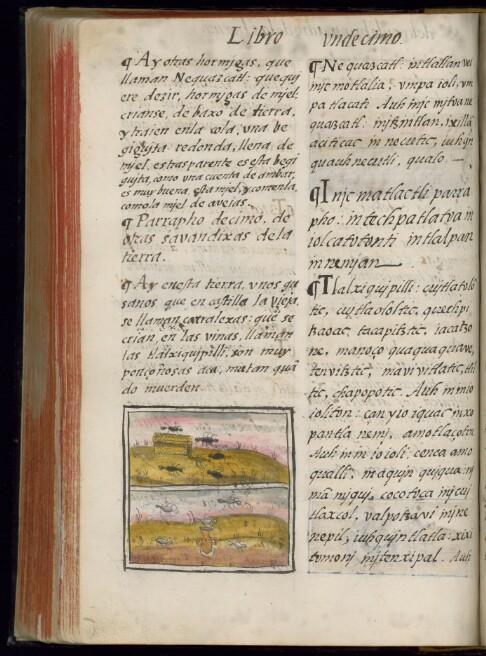 Libro vndecimo.
¶ Ay otras hormigas, que
llaman Nequazcatl: que qui
ere dezir, hormigas de miel:
crianse, de baxo de tierra,
y traen en la cola, vna be
xiguita redonda, llena de
miel, estrasparente es esta bexi
guita, como vna cuenta de ambar,
es muy buena, esta miel, y comenla,
como la miel de avejas.
¶ Parrapho decimo. de
otras savandixas de la
tierra.
¶ Ay en esta tierra, vnos gu
sanos que en castilla la vieja,
se llaman que se
crian, en las viñas, llaman
las tlalxiquipilli, son muy
ponçoñosas aca, matan quã
do muerden.
¶ Nequazcatl: intlallan
injc motlalia, vmpa ioli, vm
pa tlacati. Auh injc mjtva ne
quazcatl: injtzintlan, ixilla
aciticac in necutic, iuhqn
quauhnecutli, qualo.
¶ Injc matlactli parra
pho: intechpatlatva in
iolcatvtonti intlalpan
in nenjan
¶ Tlalxiquipilli: cuitlatolo
tic, cuitlaololtic, quechpi
tzaoac, tacapitztic, iacatzo
ne, manoço quaquaquave,
tenvitztic, mavivitlatic, tlil
tic, chapopotic. Auh in mio
ioliton: can yio iquac in xo
pantla nemj, amo tlaçoton
Auh in in ioioli: cenca amo
qualli, in aquin quiqua:
mjqui, cocotvca
tlaxcol, valpotzavi injne
nepil, iuhqujntlatla: xixi
tvmonj injtenxipal. Auh